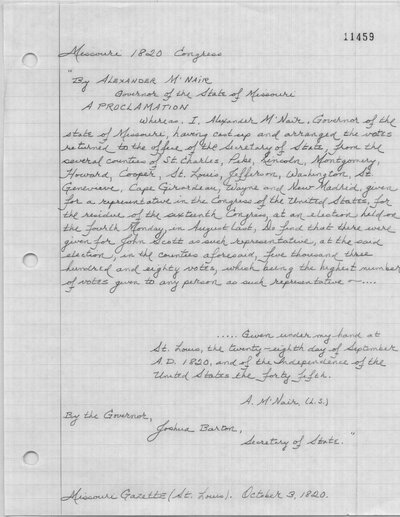 11459
Missouri 1820 Congress
"By ALEXANDER M'NAIR
Governor of the State of Missouri
A PROCLAMATION
Whereas, I, Alexander M'Nair, Governor of the
state of Missouri, having cast up and arranged the votes
returned to the office of the Secretary of State, from the
several counties of St. Charles, Pike, Lincoln, Montgomery,
Howard, Cooper, St. Louis, Jefferson, Washington, St.
Genevieve, Cape Girardeau, Wayne and New Madrid, given
for a representative in the Congress of the United States, for
the residue of the sixteenth Congress, at an election held on
the fourth Monday, in August last, do find that there were
given for John Scott as such representative, at the said
election, in the counties aforesaid, five thousand three
hundred and eighty votes, which being the highest number
of votes given to any person as such representative — ....
..... Given under my hand at
St. Louis, the twenty-eighth day of September
A.D. 1820, and of the Independence of the
United States the forty fifth.
A. M'Nair, (L.S.)
By the Governor,
Joshua Barton,
Secretary of State."
Missouri Gazette (St. Louis). October 3, 1820.